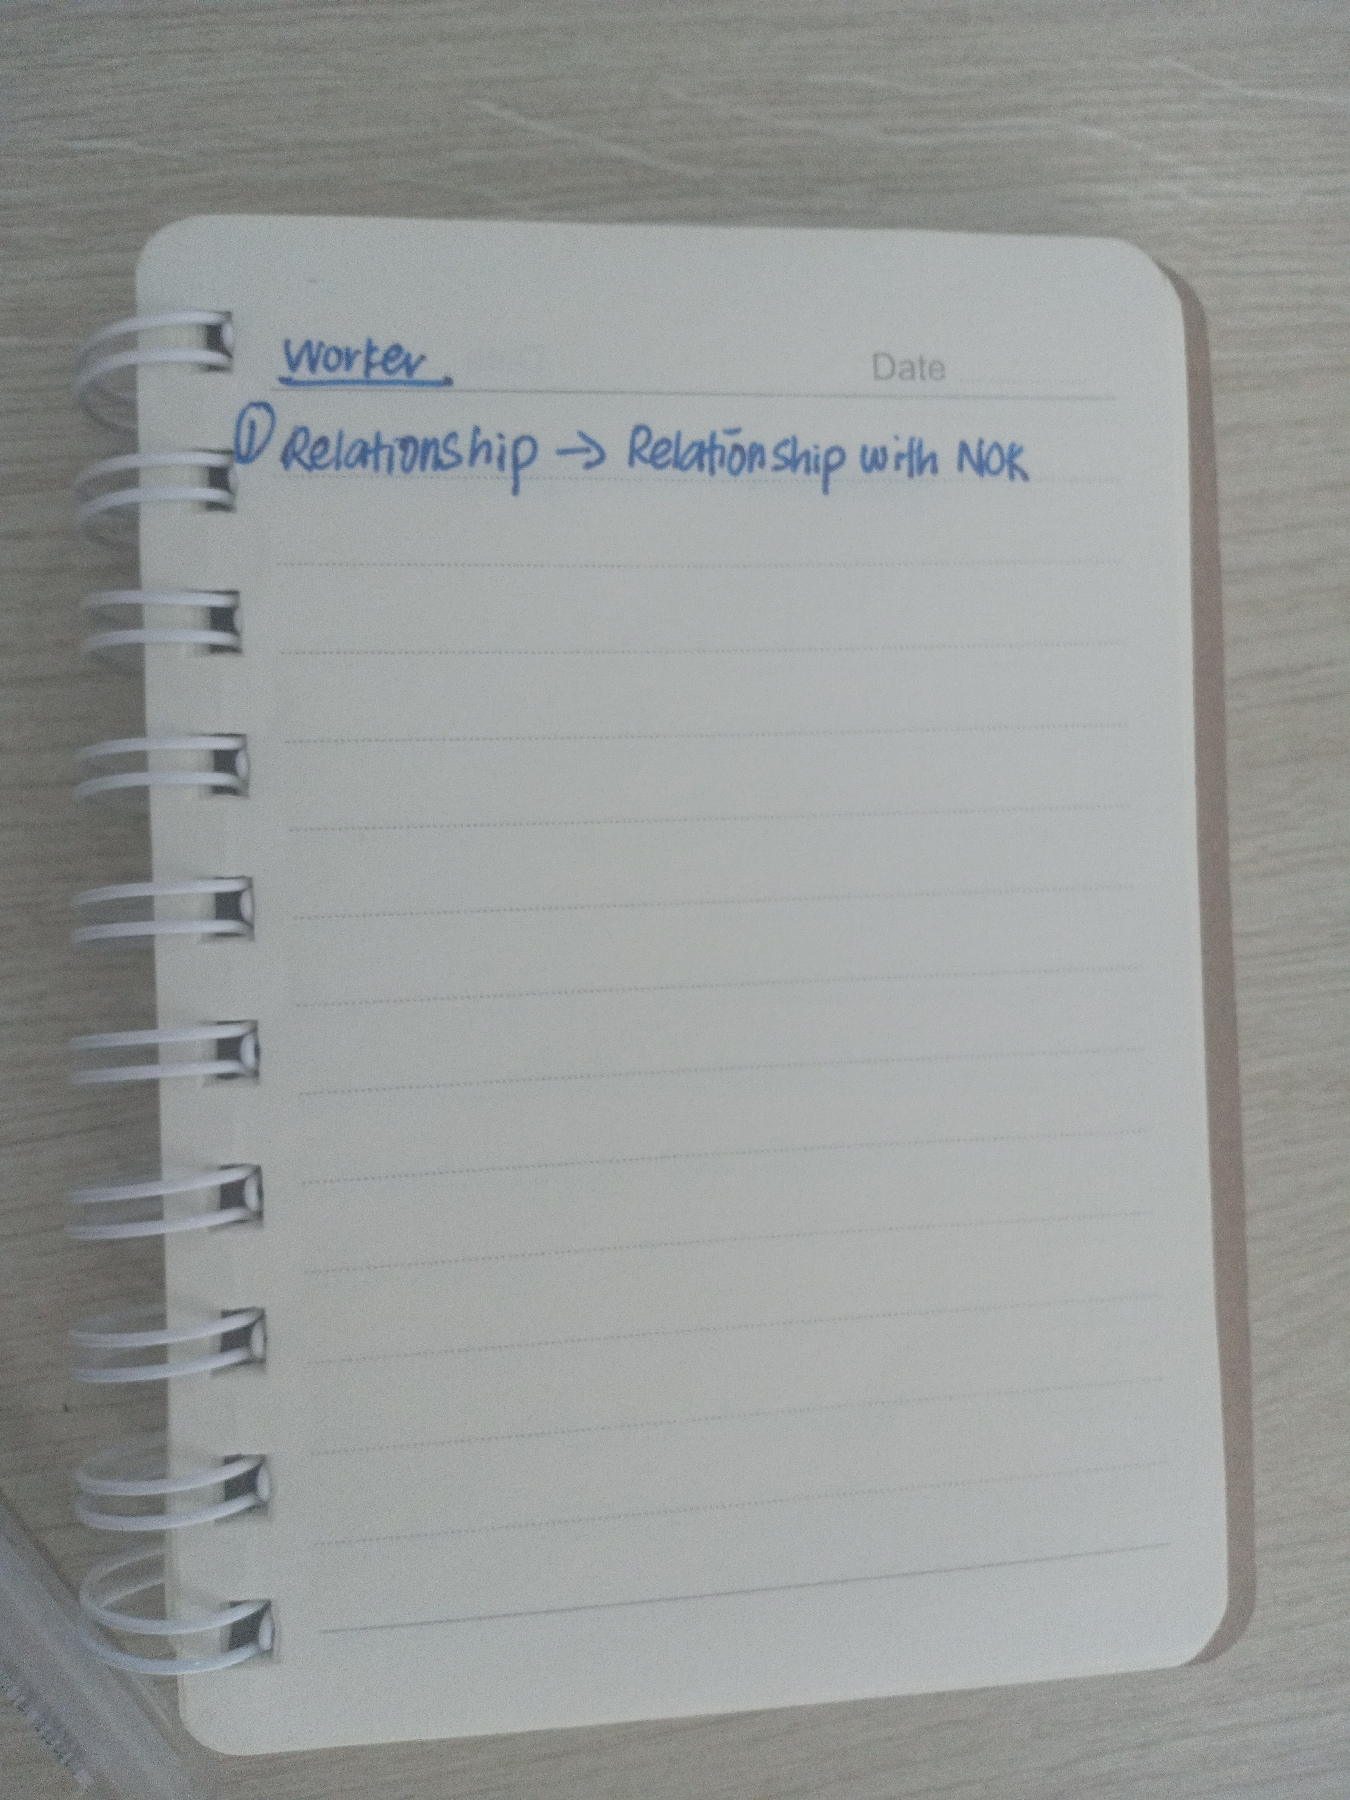 Worker.
Date
① Relationship → Relationship with NOK